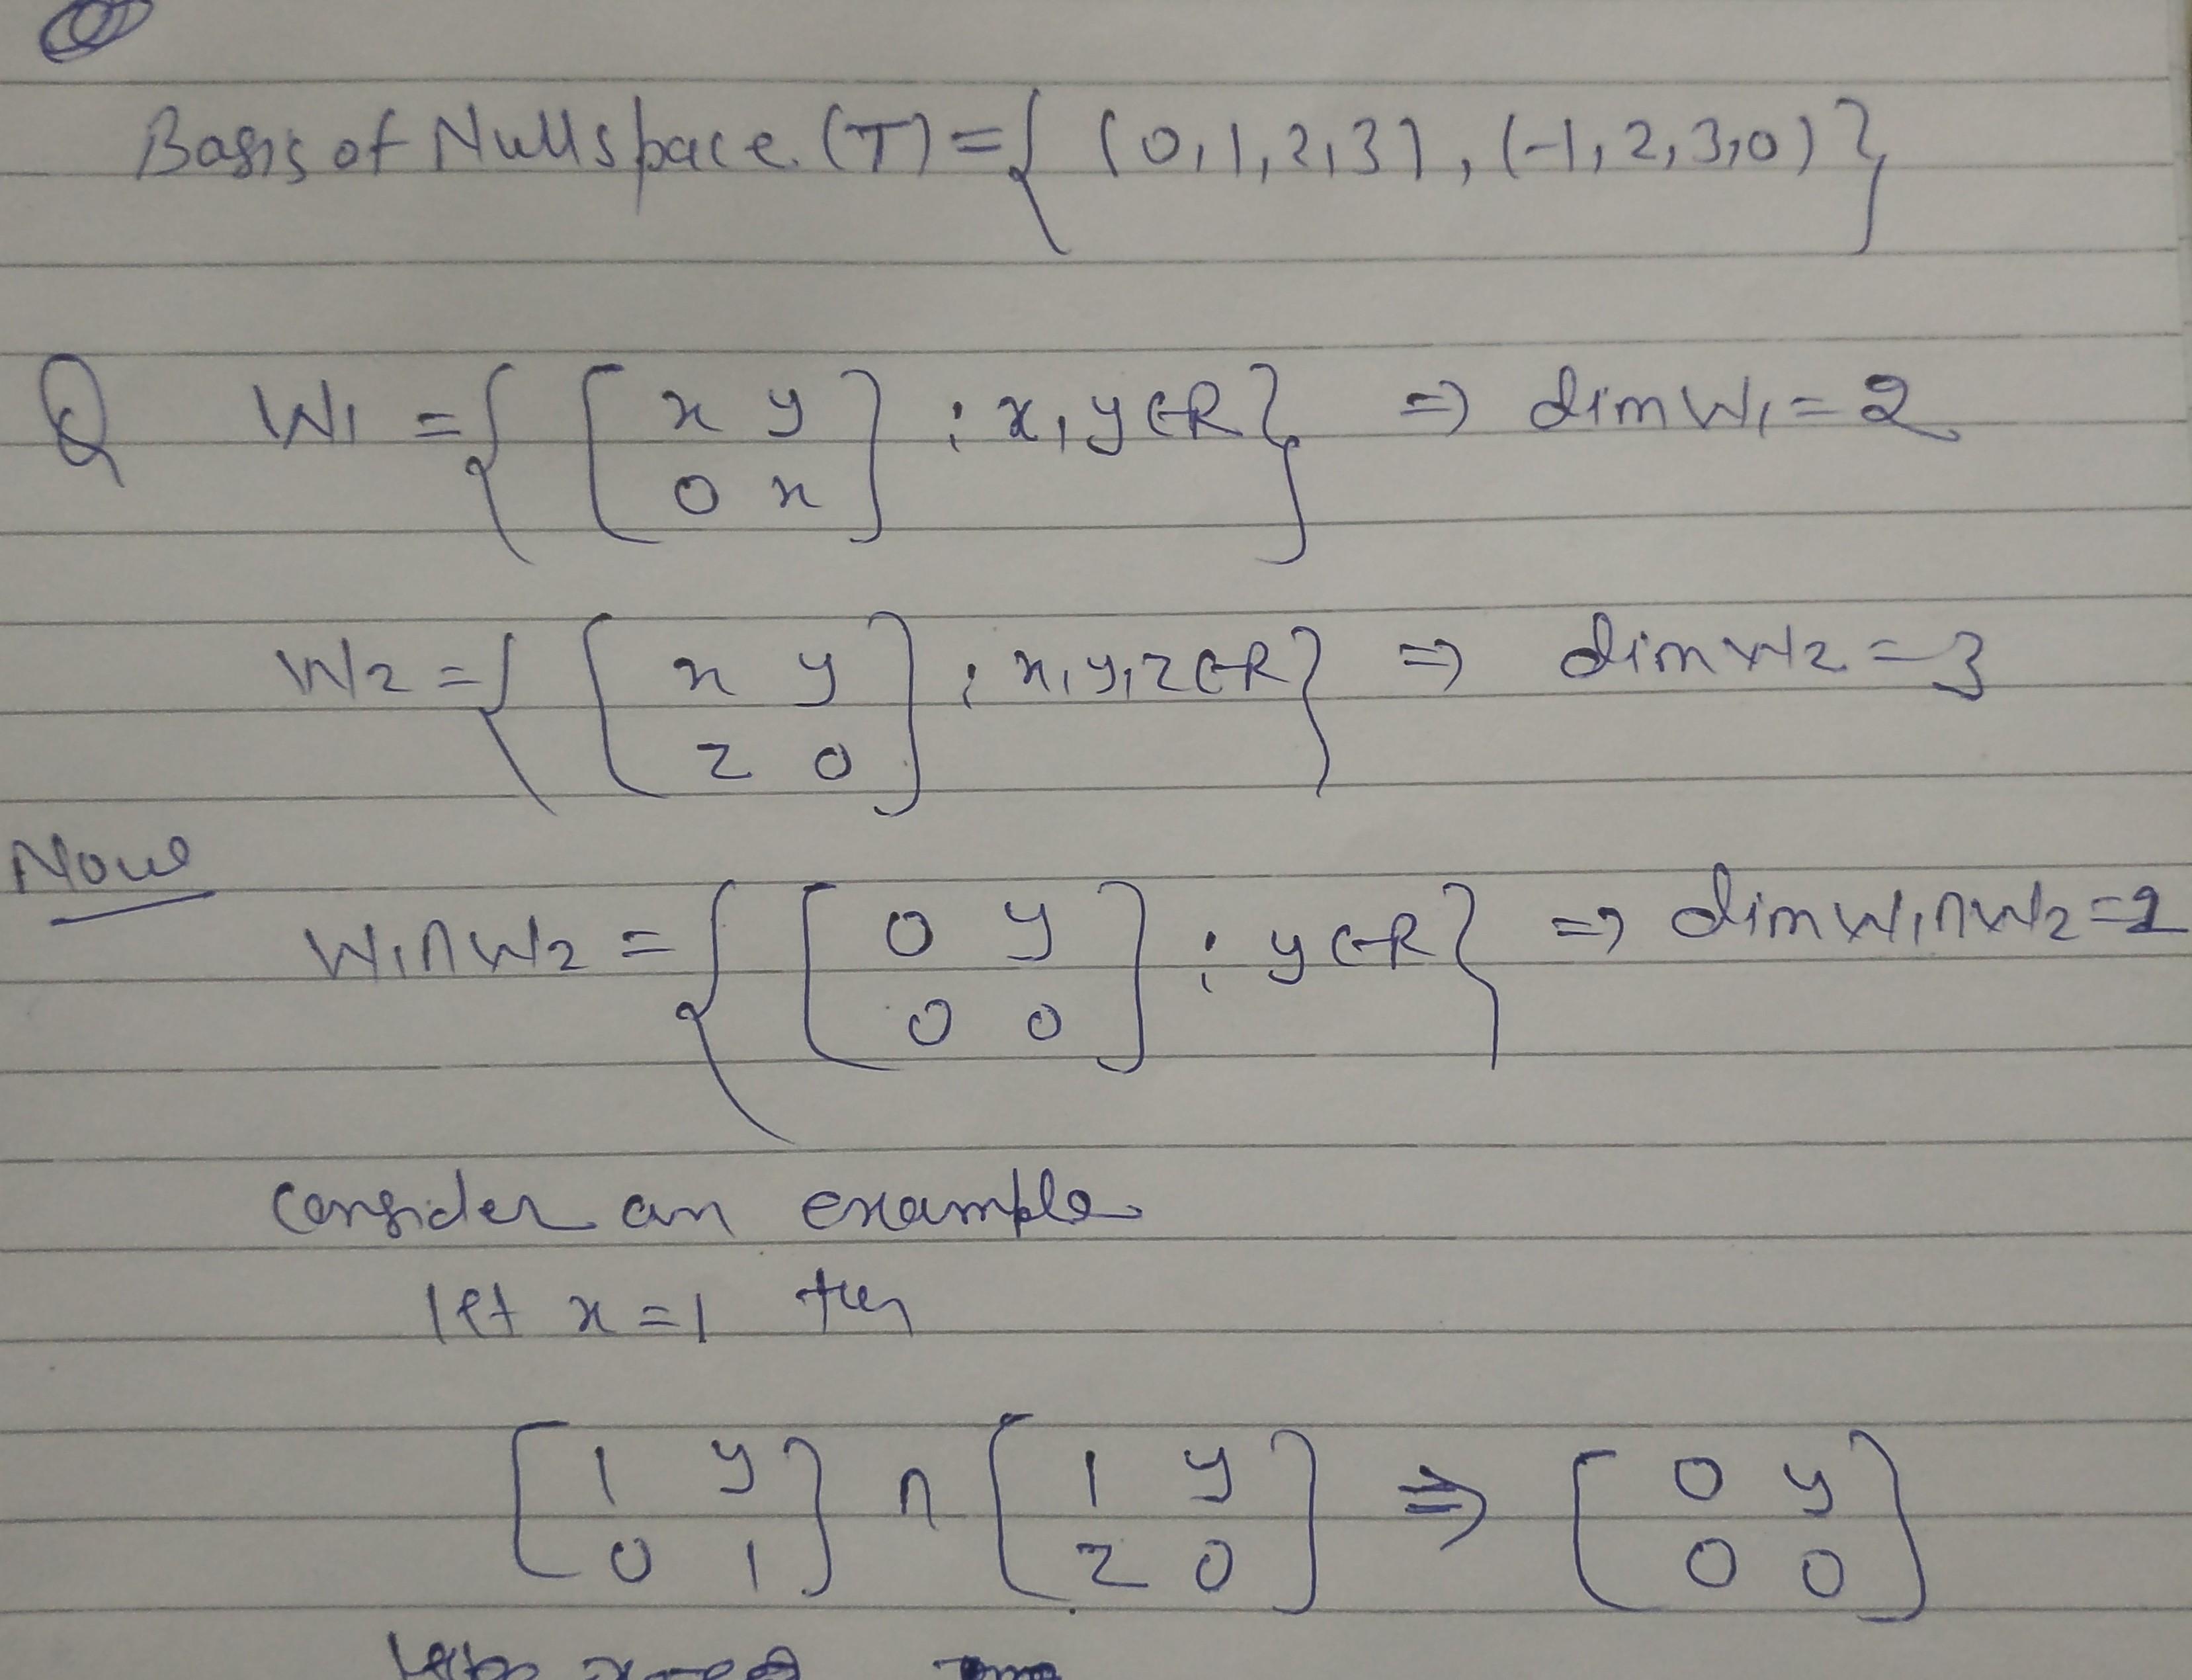 Basis of Nullspace (T) = { (0,1,2,3), (-1,2,3,0) }
Q W1 = { [ x y ; 0 x ] : x, y ∈ R } ⇒ dim W1 = 2
W2 = { [ x y ; z 0 ] : x, y, z ∈ R } ⇒ dim W2 = 3
Now
W1 ∩ W2 = { [ 0 y ; 0 0 ] : y ∈ R } ⇒ dim W1 ∩ W2 =
consider an example
let x = 1 then
[ 1 y ; 0 1 ] ∩ [ 1 y ; z 0 ] ⇒ [ 0 y ; 0 0 ]